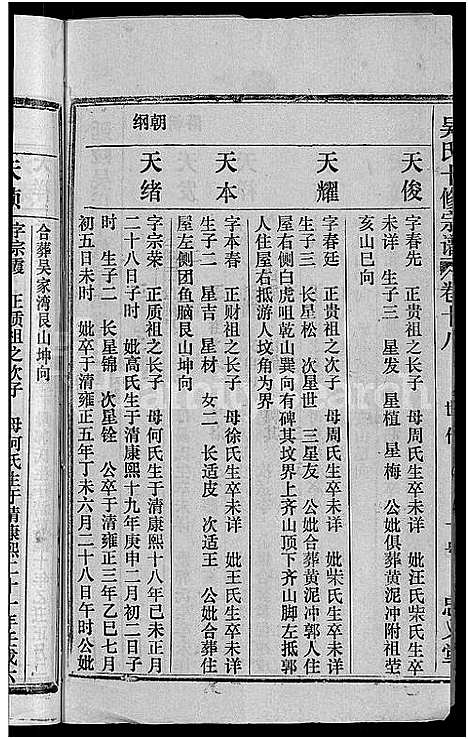 吴氏十修宗谱
卷十八
天俊
字春先 正贵祖之长子 母周氏生卒未详 妣汪氏柴氏生卒
未详 生子三 星发 星植 星梅 公妣俱葬黄泥冲附祖茔
亥山巳向
天耀
字春廷 正贵祖之次子 母周氏生卒未详 妣柴氏生卒未详
生子三 长星松 次星世 三星友 公妣合葬黄泥冲郭人住
屋右侧白虎咀乾山巽向有碑其坟界上齐山顶下齐山脚左抵郭
人住屋右抵游人坟角为界
天本
字本春 正财祖之长子 母徐氏生卒未详 妣王氏生卒未详
生子二 星吉 星材 女二 长适皮 次适王 公妣合葬住
屋左侧团鱼脑艮山坤向
朝纲
天绪
字宗荣 正质祖之长子 母何氏生于清康熙十八年己未正月
二十八日子时 妣高氏生于清康熙十九年庚申二月初二日子
时 生子二 长星锦 次星铨 公卒于清雍正三年乙巳七月
初五日未时 妣卒于清雍正五年丁未六月二十八日午时公妣
合葬吴家湾艮山坤向
字宗霞 正质祖之次子 母何氏生于清康熙二十